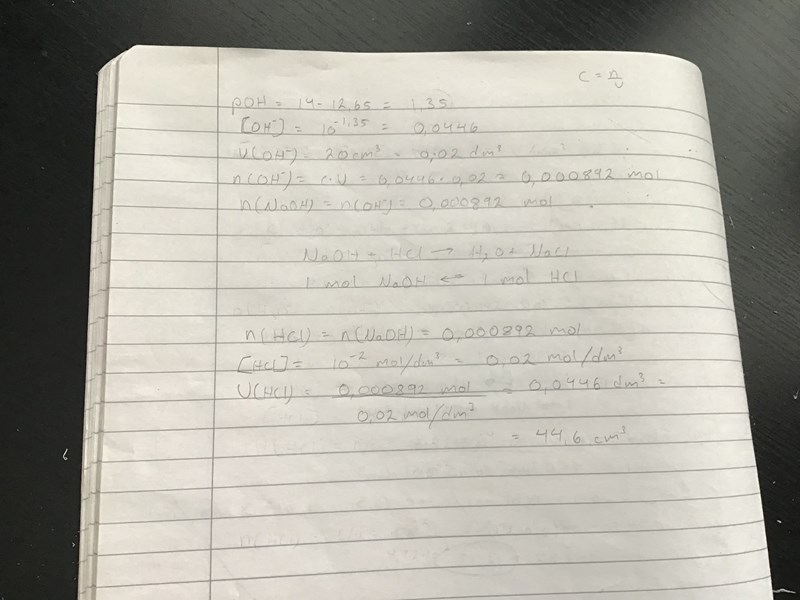 c = n/v
pOH = 14 - 12,65 = 1,35
[OH⁻] = 10^-1,35 = 0,0446
V(OH⁻) = 20 cm³ = 0,02 dm³
n(OH⁻) = c·V = 0,0446 · 0,02 = 0,000892 mol
n(NaOH) = n(OH⁻) = 0,000892 mol
NaOH + HCl → H₂O + NaCl
1 mol NaOH ↔ 1 mol HCl
n(HCl) = n(NaOH) = 0,000892 mol
[HCl] = 10^-2 mol/dm³ = 0,02 mol/dm³
V(HCl) = 0,000892 mol / 0,02 mol/dm³ = 0,0446 dm³ =
= 44,6 cm³